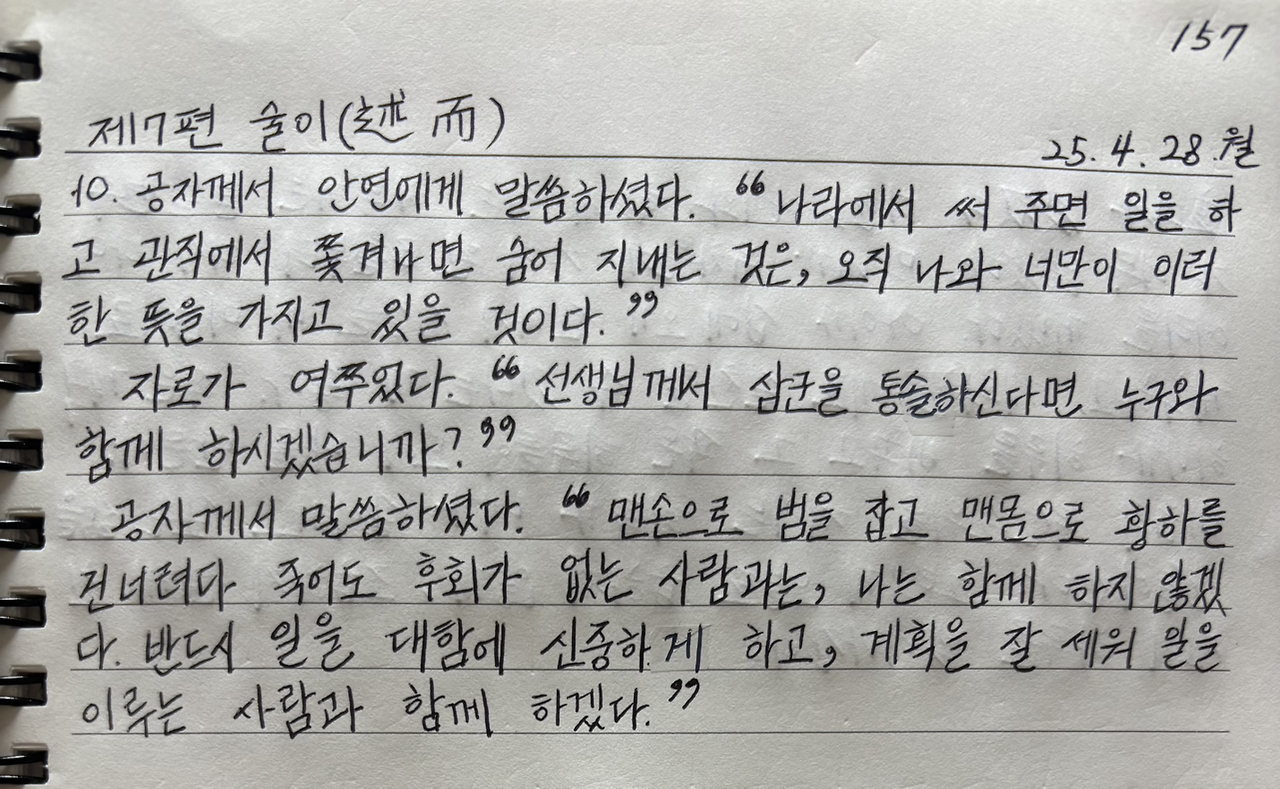 157
제7편 술이(述而)
25.4.28.월
10. 공자께서 안연에게 말씀하셨다. “나라에서 써 주면 일을 하
고 관직에서 쫓겨나면 숨어 지내는 것은, 오직 나와 너만이 이러
한 뜻을 가지고 있을 것이다.”
자로가 여쭈었다. “선생님께서 삼군을 통솔하신다면 누구와
함께 하시겠습니까?”
공자께서 말씀하셨다. “맨손으로 범을 잡고 맨몸으로 황하를
건너려다 죽어도 후회가 없는 사람과는, 나는 함께 하지 않겠
다. 반드시 일을 대함에 신중하게 하고, 계획을 잘 세워 일을
이루는 사람과 함께 하겠다.”